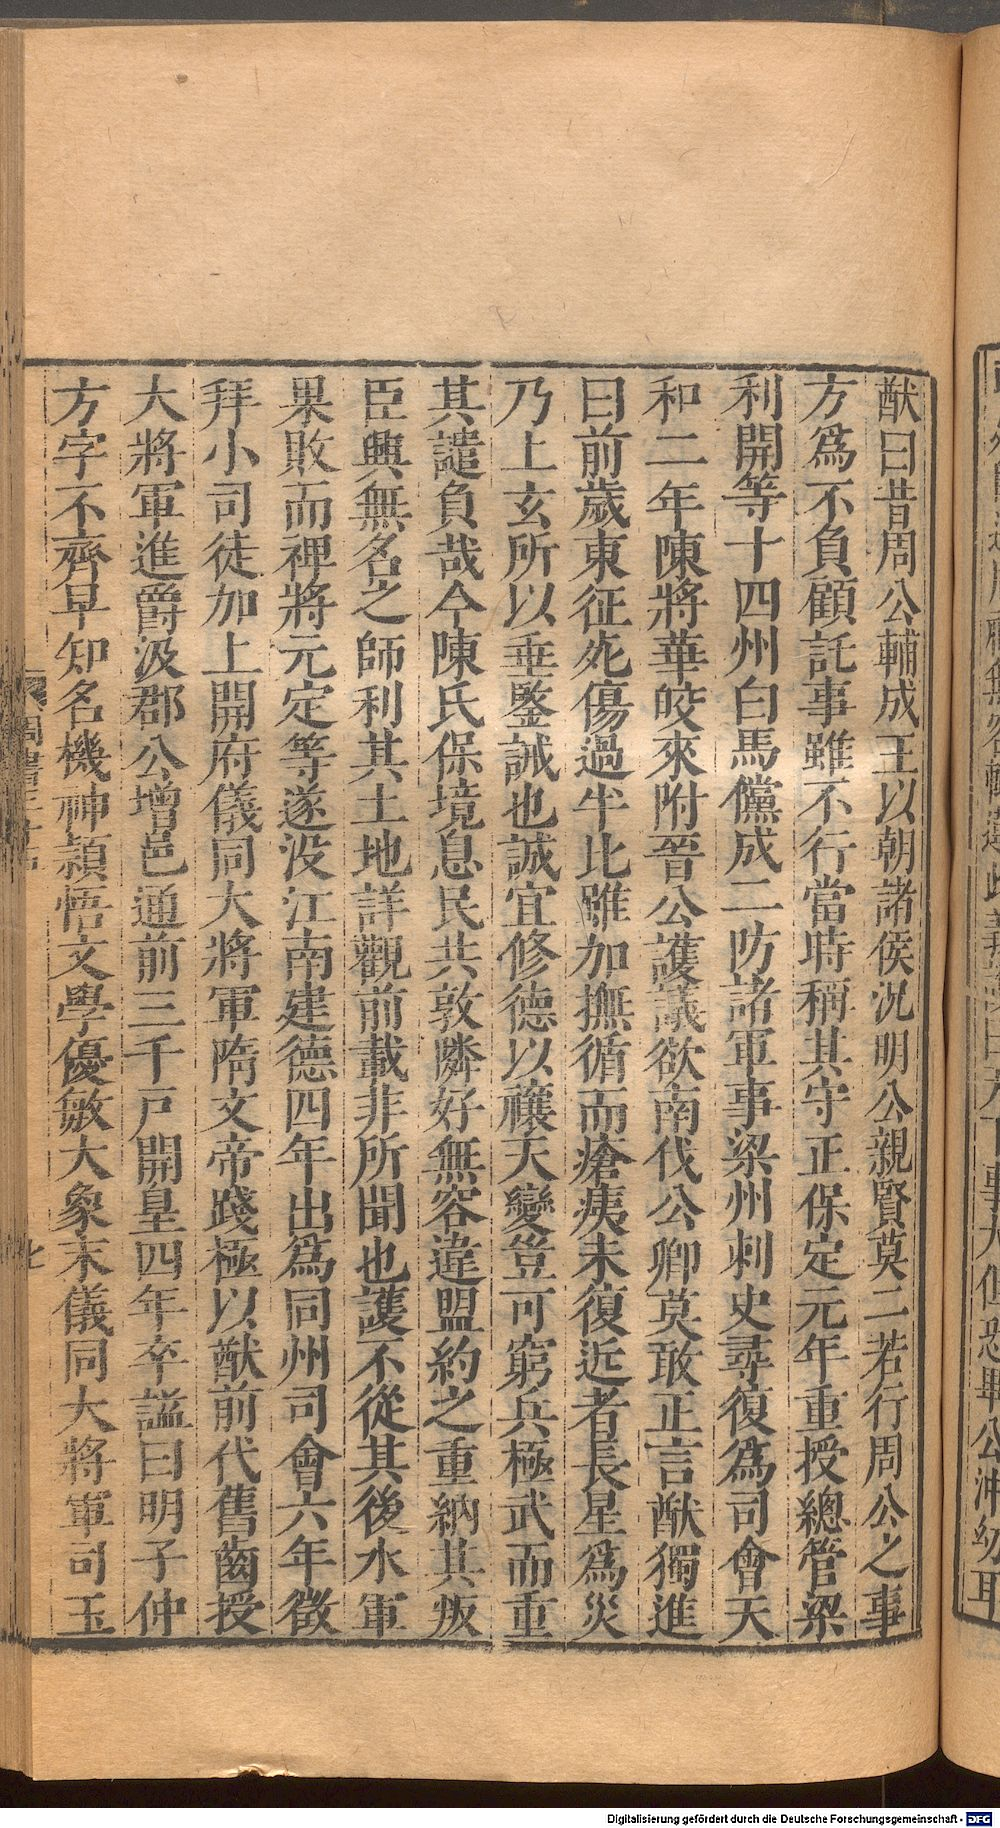 猷曰昔周公輔成王以朝諸侯況明公親賢莫二若行周公之事
方為不負顧託事雖不行當時稱其守正保定元年重授總管梁
利開等十四州白馬儻成二防諸軍事梁州刺史尋復為司會天
和二年陳將華皎來附晉公護議欲南伐公卿莫敢正言猷獨進
曰前歲東征死傷過半比雖加撫循而瘡痍未復近者長星為災
乃上玄所以垂鑒誡也誠宜修德以禳天變豈可窮兵極武而重
其譴負哉今陳氏保境息民共敦隣好無容違盟約之重納其叛
臣興無名之師利其土地詳觀前載非所聞也護不從其後水軍
果敗而裨將元定等遂沒江南建德四年出為同州司會六年徵
拜小司徒加上開府儀同大將軍隋文帝踐極以猷前代舊齒授
大將軍進爵汲郡公增邑通前三千戶開皇四年卒謚曰明子仲
方字不齊早知名機神頴悟文學優敏大象末儀同大將軍司玉
Digitalisierung gefördert durch die Deutsche Forschungsgemeinschaft - DFG